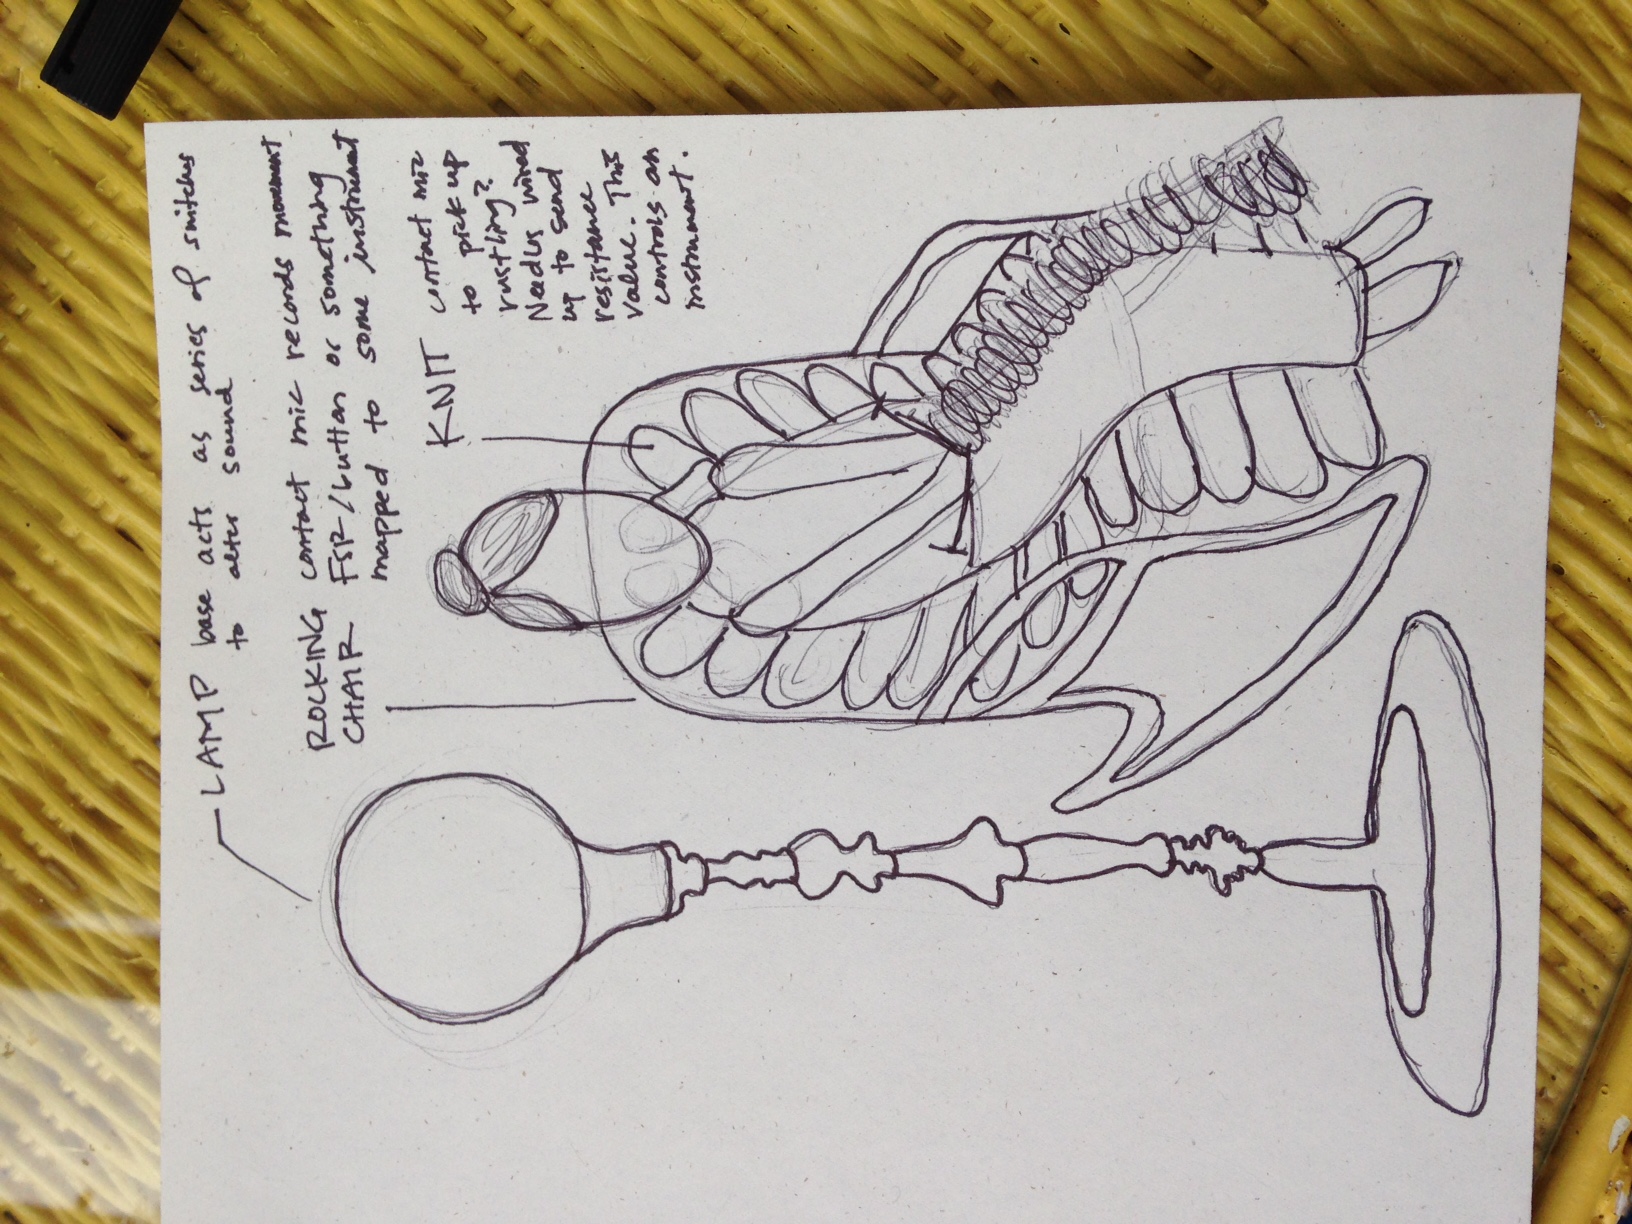 LAMP base acts as series of switches
to alter sound
ROCKING contact mic records movement
CHAIR FSR/button or something
mapped to some instrument
KNIT contact mic
to pick up
rustling?
Needles wired
up to send
resistance
value. This
controls an
instrument.